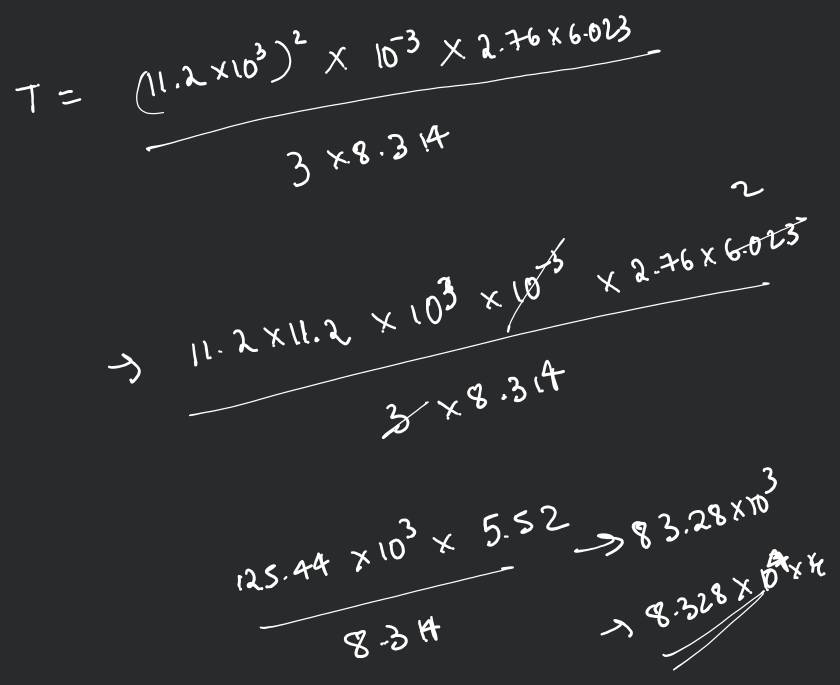 T = (11.2×10³)² × 10⁻³ × 2.76×6.023
3 ×8.314
2
→ 11.2×11.2 × 10³ × 10⁻³ × 2.76×6.023
3 × 8.314
125.44 ×10³ × 5.52 → 83.28×10³
8.314
→ 8.328 × 10⁴ ×